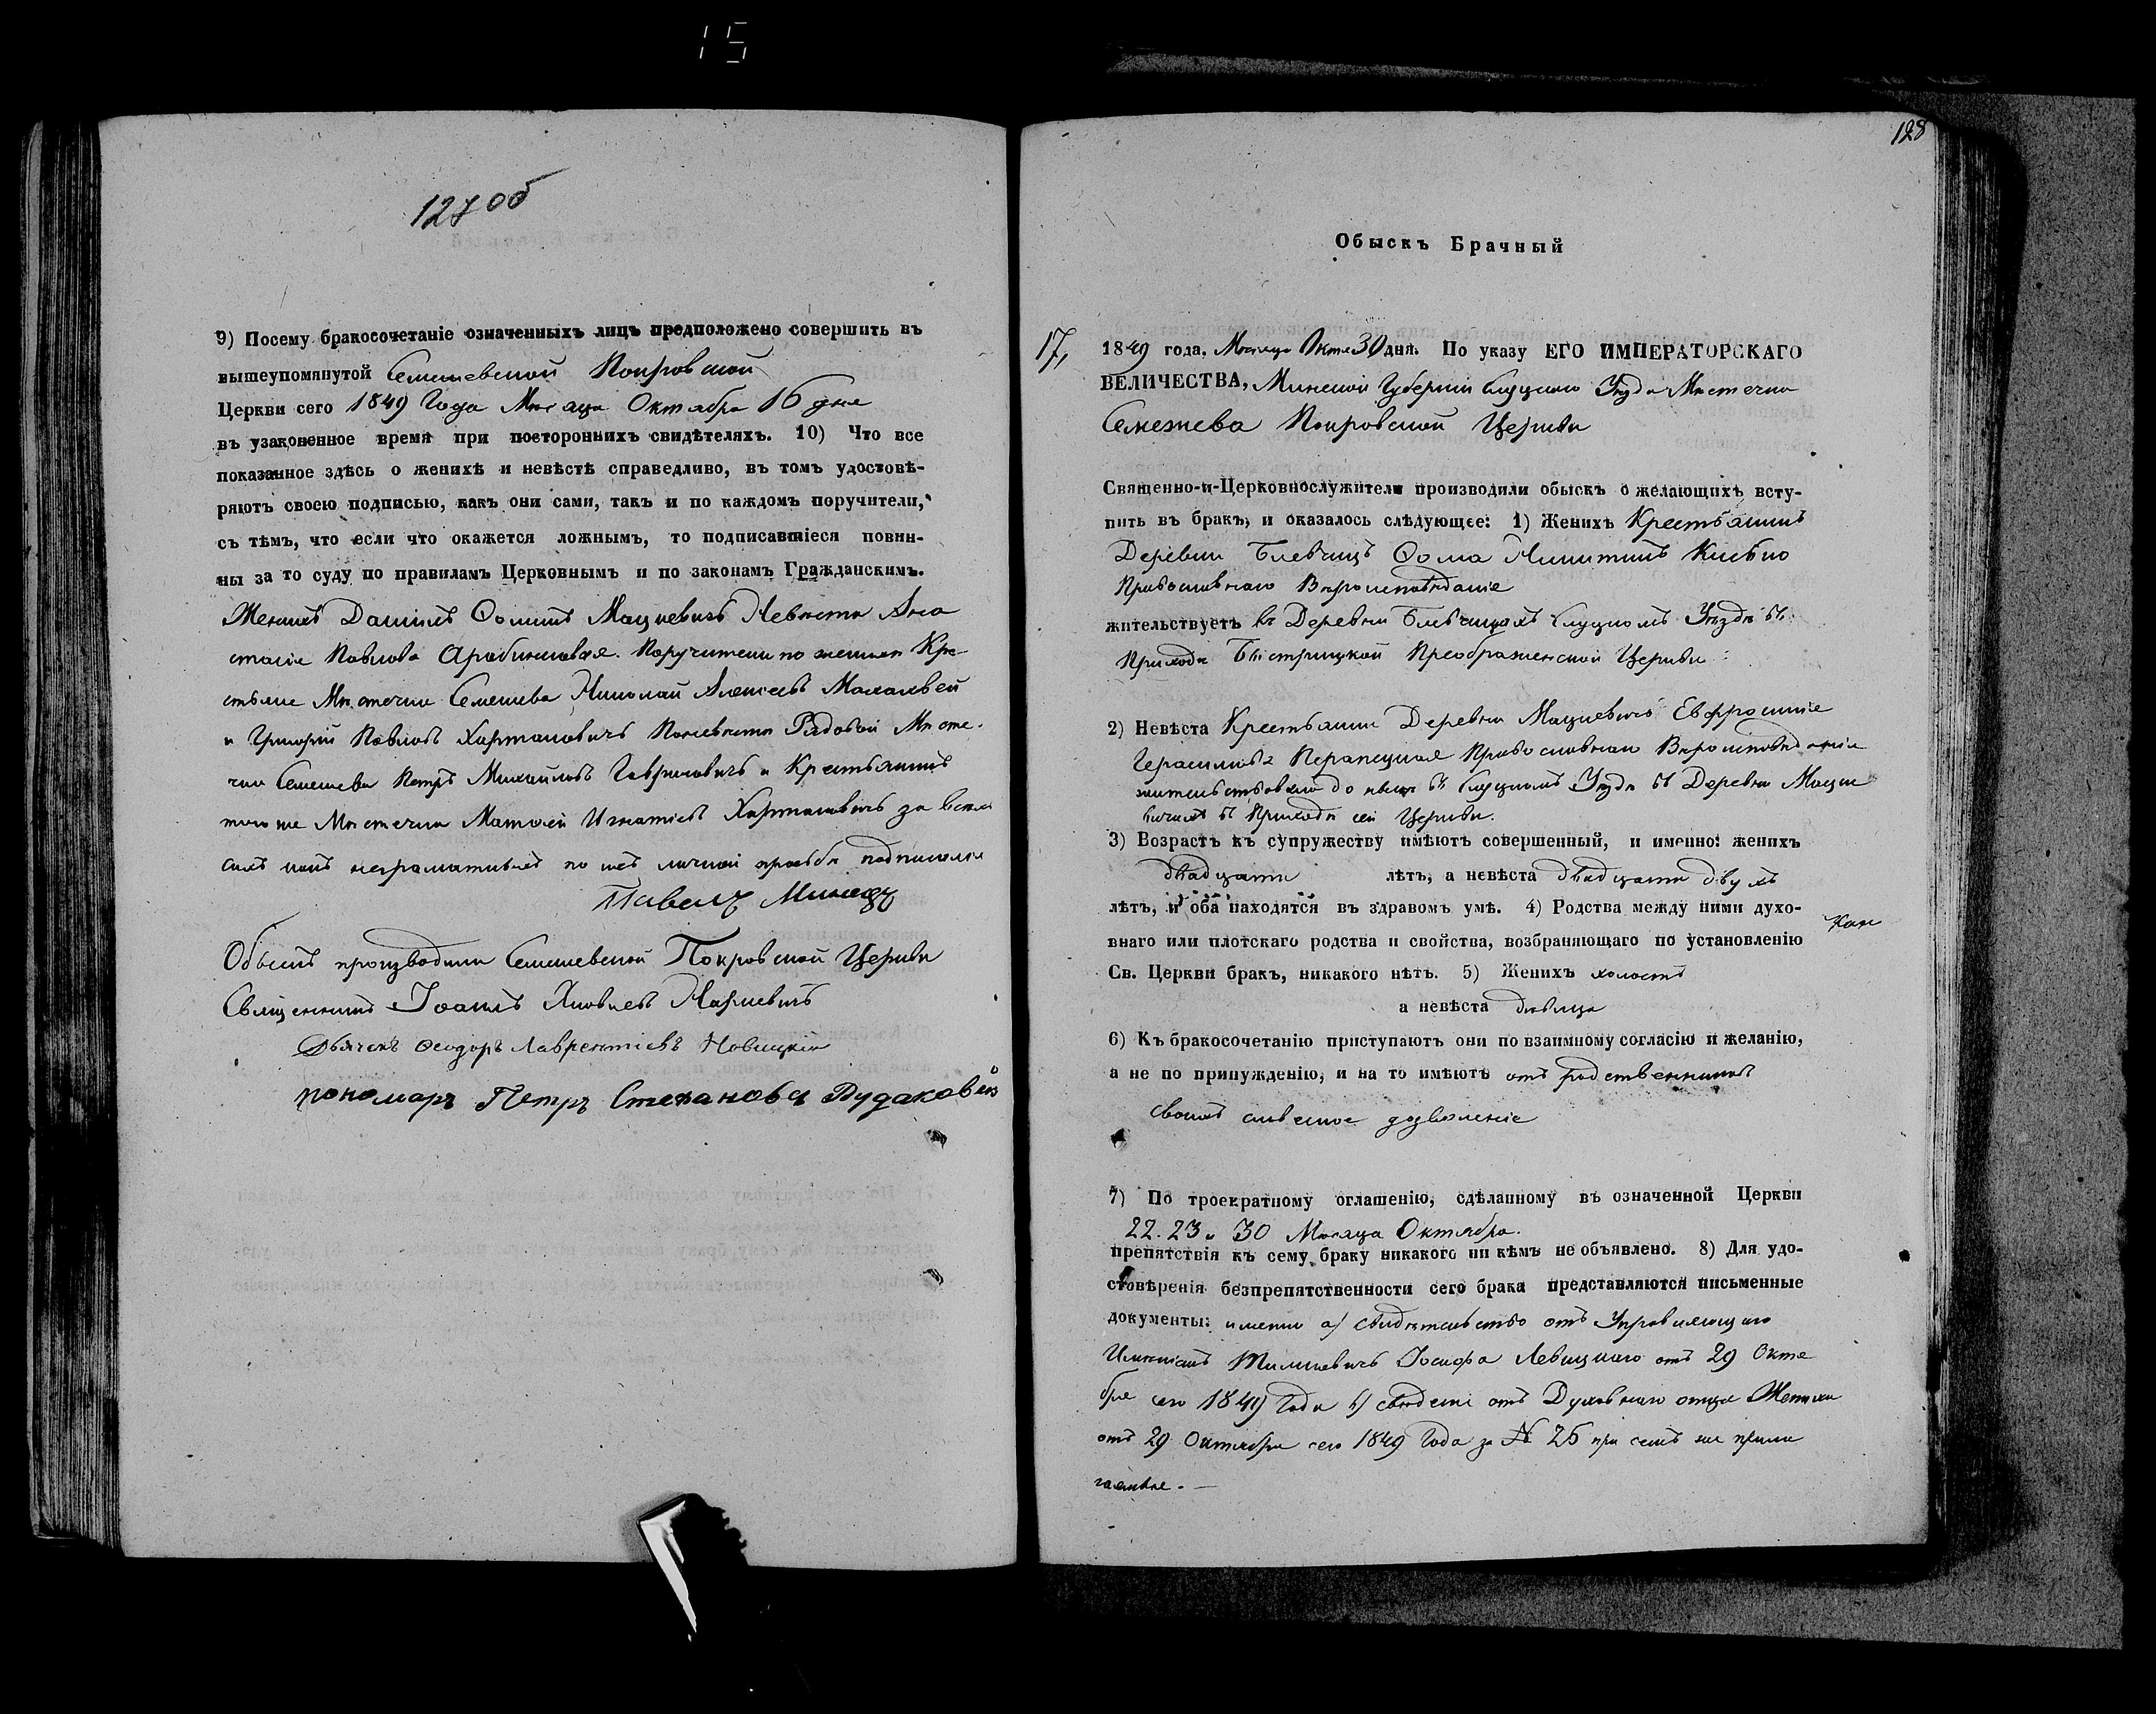 15
127об
9) Посему бракосочетаніе означенныхъ лицъ предположено совершить въ
вышеупомянутой Семежевской Покровской
Церкви сего 1849 Года Месяца Октября 16 дня
въ узаконенное время при постороннихъ свидѣтеляхъ. 10) Что все
показанное здѣсь о женихѣ и невѣстѣ справедливо, въ томъ удостовѣ-
ряютъ своею подписью, какъ они сами, такъ и по каждомъ поручители,
съ тѣмъ, что если что окажется ложнымъ, то подписавшіеся повин-
ны за то суду по правиламъ Церковнымъ и по законамъ Гражданскимъ.
Женихъ Даніилъ Ѳоминъ Мацкевичъ Невѣста Ана
стасія Павлова Поручители по женихѣ Кре
стьяне Мѣстечка Семежева Николай Алексѣевъ
и Григорій Павловъ Хартановичъ По невѣстѣ Рядовой Мѣсте-
чка Семежева Петръ Михайловъ Гавриловичъ и Крестьянинъ
того же Мѣстечка Матѳей Игнатіевъ Хартановичъ за всѣхъ
сихъ какъ неграматныхъ по ихъ личной просьбѣ подписался
Павелъ
Обыскъ производили Семежевской Покровской Церкви
Священникъ Іоаннъ Яковлевъ
Дьячекъ Ѳеодоръ Лаврентіевъ Новицкій
пономарь Петръ Степановъ Рудаковскій
128
Обыскъ Брачный
17, 1849 года, Месяца Октя 30 дня. По указу ЕГО ИМПЕРАТОРСКАГО
ВЕЛИЧЕСТВА, Минской Губерніи Слуцкаго Уѣзда Мѣстечка
Семежева Покровской Церкви
Священно-и-Церковнослужители производили обыскъ о желающихъ всту-
пить въ бракъ, и оказалось слѣдующее: 1) Женихъ Крестьянинъ
Деревни Блевчицъ Ѳома Никитинъ
Православнаго Вероисповѣданія
жительствуетъ въ Деревни Блевчицахъ Слуцкомъ Уѣздѣ въ
Приходѣ Быстрицкой Преображенской Церкви
2) Невѣста Крестьянка Деревни Мацкевичъ Евфросинія
Герасимова Православнаго Вероисповѣданія
жительствовала до ныне въ Слуцкомъ Уѣздѣ въ Деревни Мацке
вичахъ въ Приходѣ сей Церкви.
3) Возрастъ къ супружеству имѣютъ совершенный, и именно: женихъ
двадцати лѣтъ, а невѣста двадцати двухъ
лѣтъ, и оба находятся въ здравомъ умѣ. 4) Родства между ними духо-
внаго или плотскаго родства и свойства, возбраняющаго по установленію
Св. Церкви бракъ, никакого нѣтъ. 5) Женихъ холостъ
а невѣста дѣвица
6) Къ бракосочетанію приступаютъ они по взаимному согласію и желанію,
а не по принужденію, и на то имѣютъ отъ родственниковъ
своихъ словесное дозволеніе
7) По троекратному оглашенію, сдѣланному въ означенной Церкви
22. 23 и 30 Месяца Октября.
препятствія къ сему браку никакого ни кѣмъ не объявлено. 8) Для удо-
стовѣренія безпрепятственности сего брака представляются письменные
документы: именно а) свидѣтельство отъ Управляющаго
Имѣніемъ Тимковичъ Іосифа Левицкаго отъ 29 Октя
бря сего 1849 Года отъ Духовнаго отца Жениха
отъ 29 Октября сего 1849 Года за № 25 при семъ же прила
гаемые. —